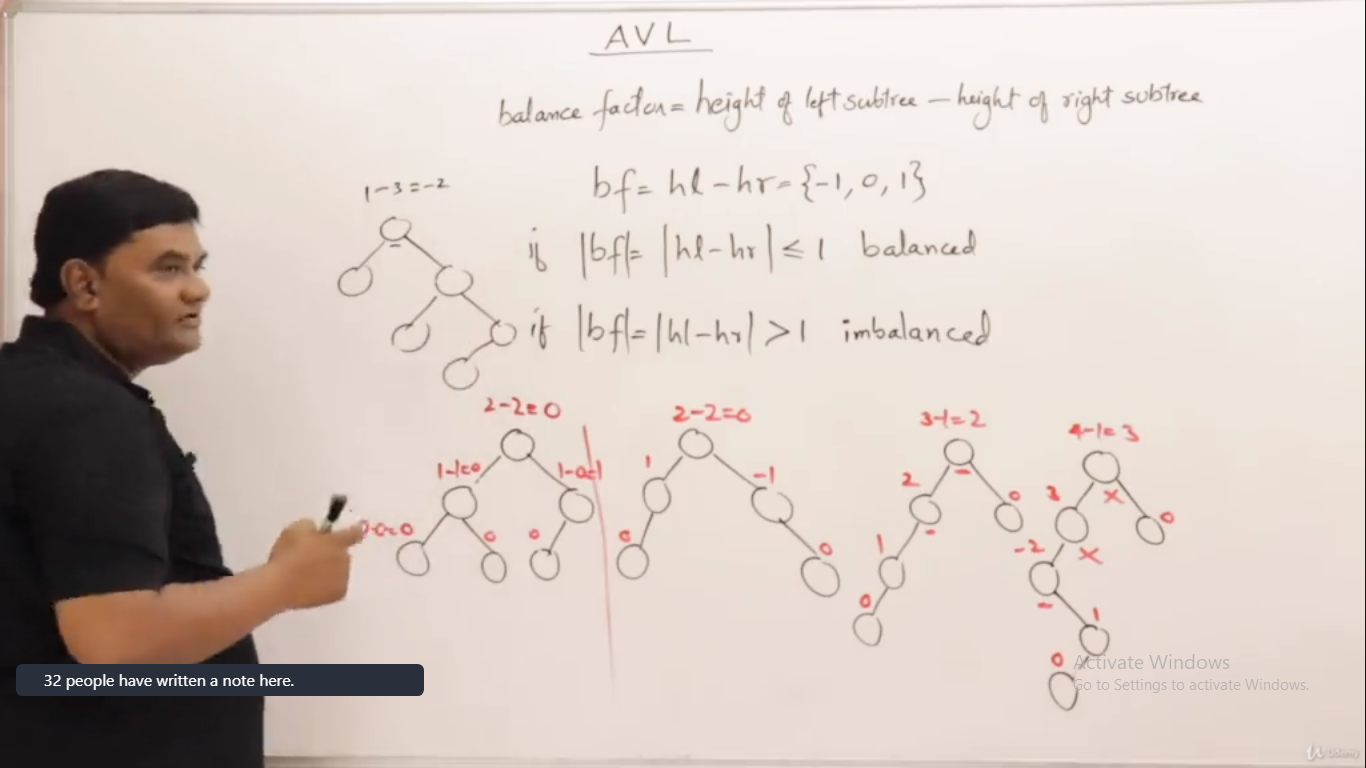 AVL
balance factor = height of left subtree – height of right subtree
bf = hl – hr = {-1, 0, 1}
1-3=-2
if |bf| = |hl – hr| ≤ 1 balanced
if |bf| = |hl – hr| > 1 imbalanced
2-2=0
2-2=0
3-1=2
4-1=3
1-1=0
1-0=1
1
-1
2
0
3
x
0
0-0=0
0
0
0
0
1
-2
x
0
1
0
32 people have written a note here.
Activate Windows
Go to Settings to activate Windows.
Udemy